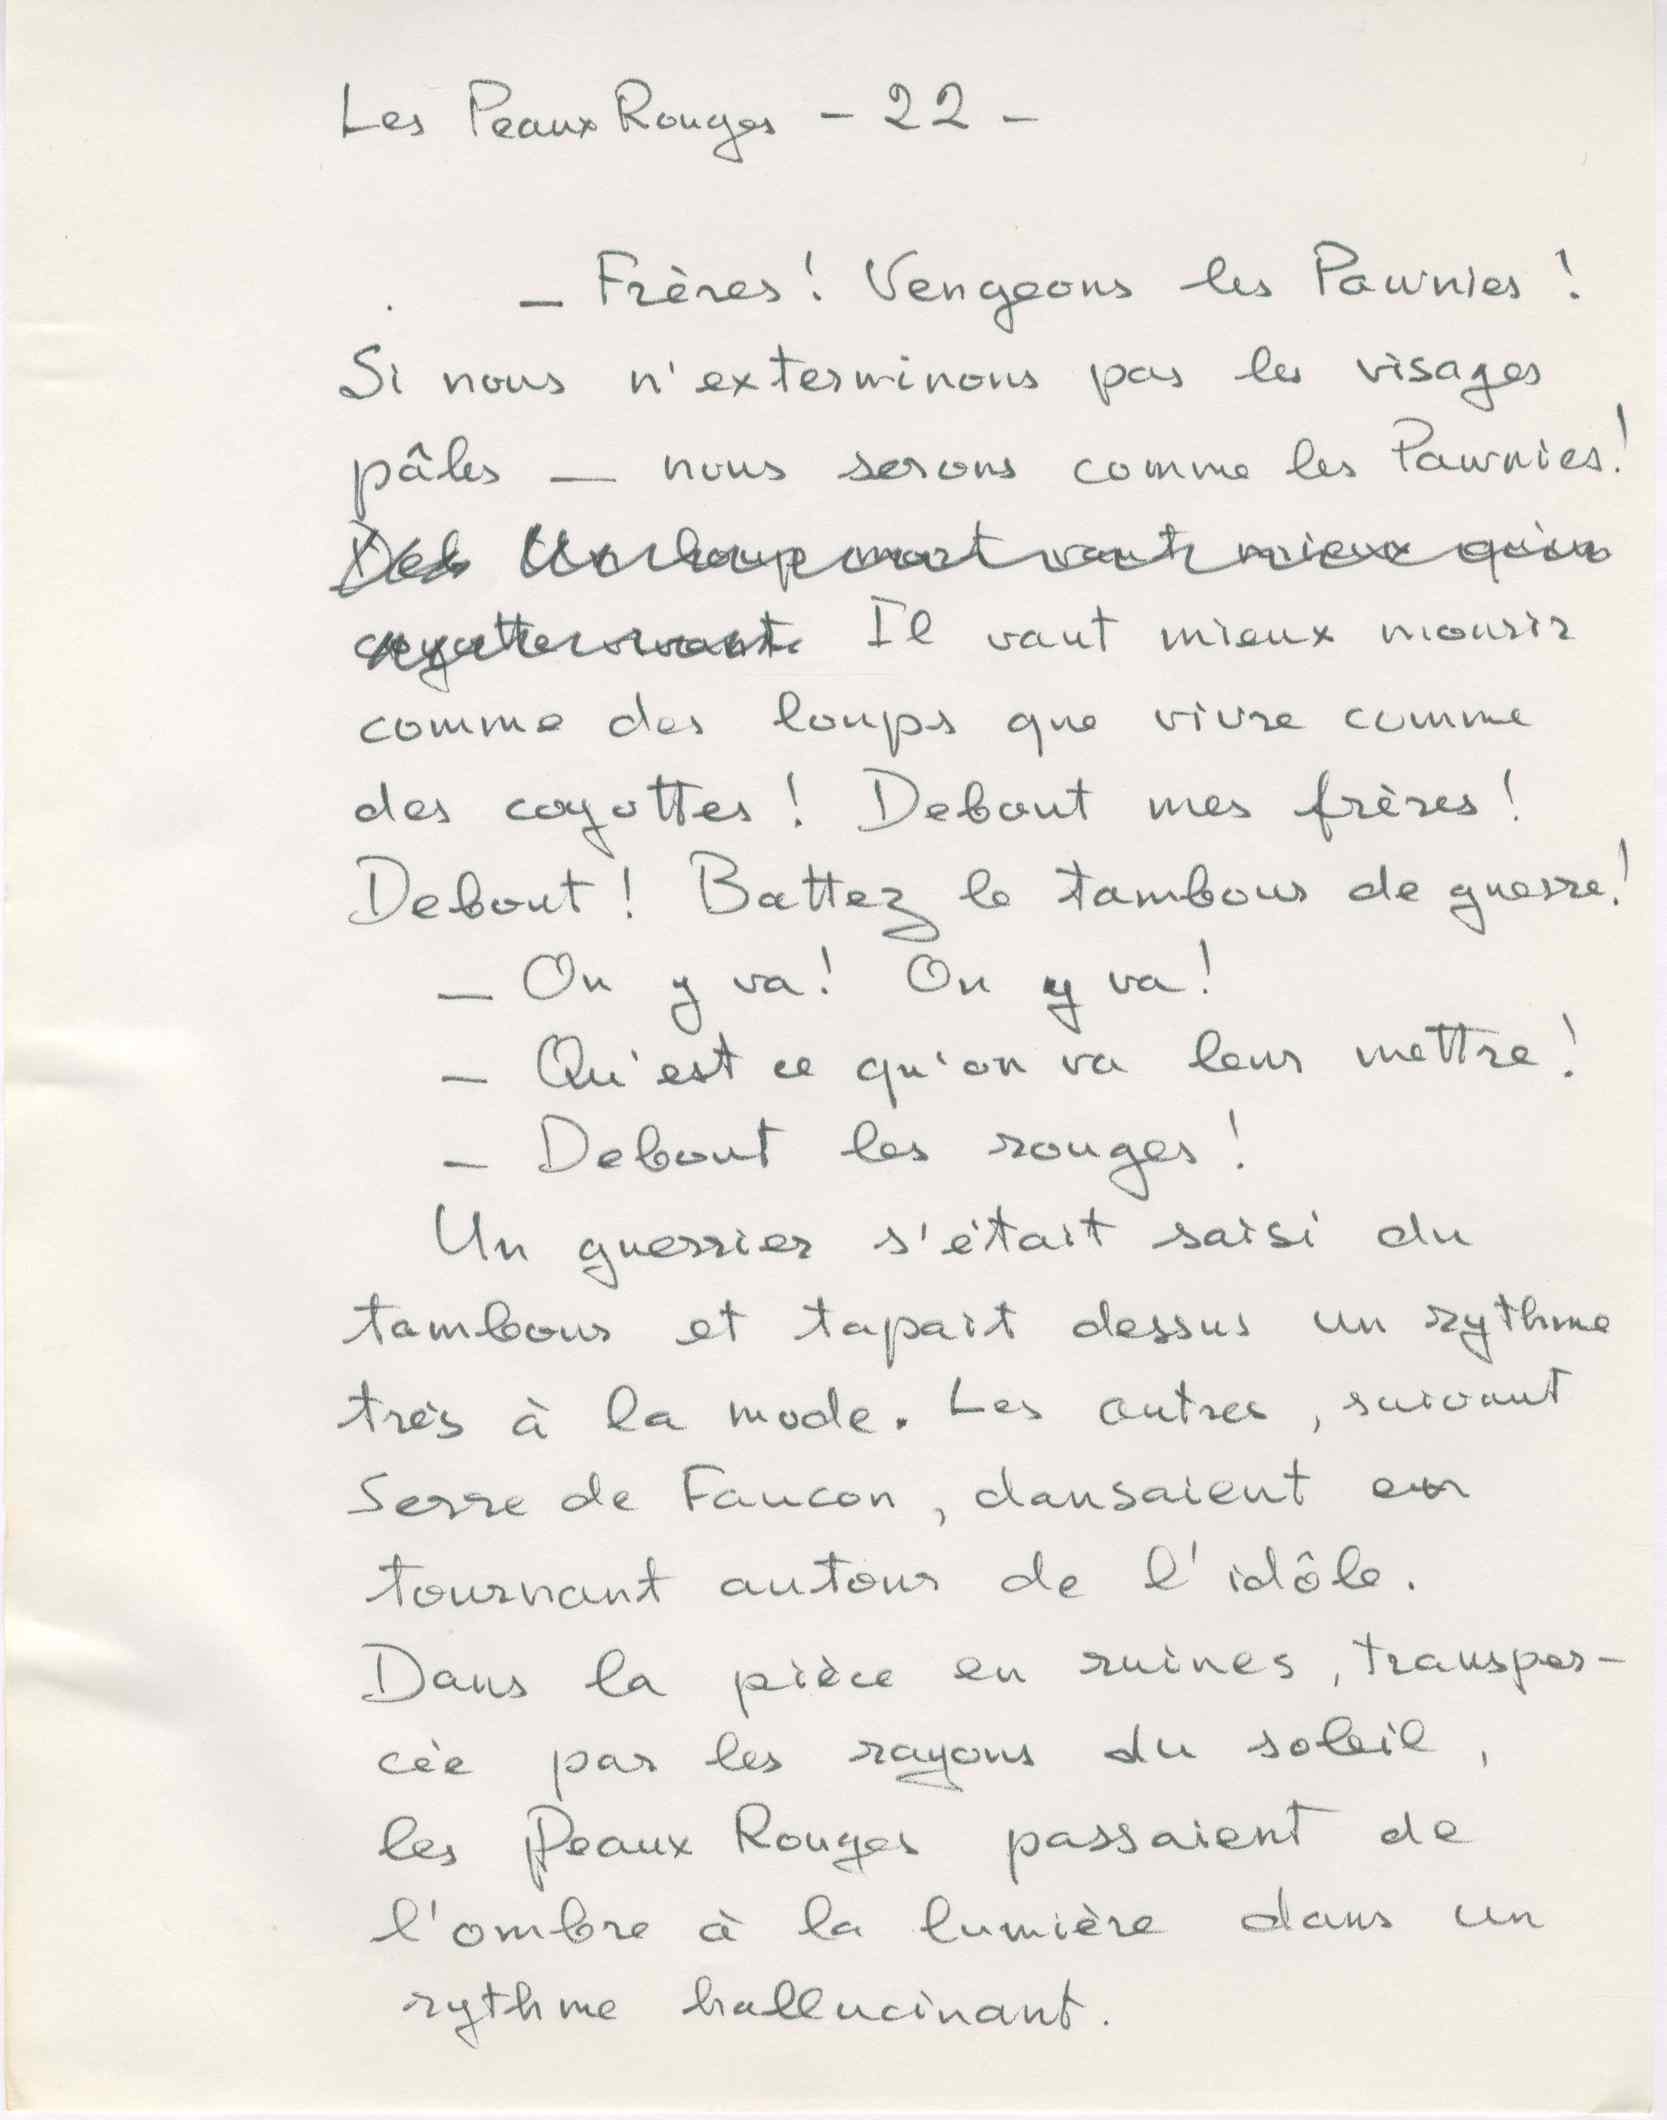 Les Peaux Rouges - 22 -
— Frères ! Vengeons les Pawnies !
Si nous n'exterminons pas les visages
pâles — nous serons comme les Pawnies !
Des Un loup mort vaut mieux qu'un
coyotte vivant. Il vaut mieux mourir
comme des loups que vivre comme
des coyottes ! Debout mes frères !
Debout ! Battez le tambour de guerre !
— On y va ! On y va !
— Qu'est ce qu'on va leur mettre !
— Debout les rouges !
Un guerrier s'était saisi du
tambour et tapait dessus un rythme
très à la mode. Les autres, suivant
Serre de Faucon, dansaient en
tournant autour de l'idôle.
Dans la pièce en ruines, transper-
cée par les rayons du soleil,
les Peaux Rouges passaient de
l'ombre à la lumière dans un
rythme hallucinant.